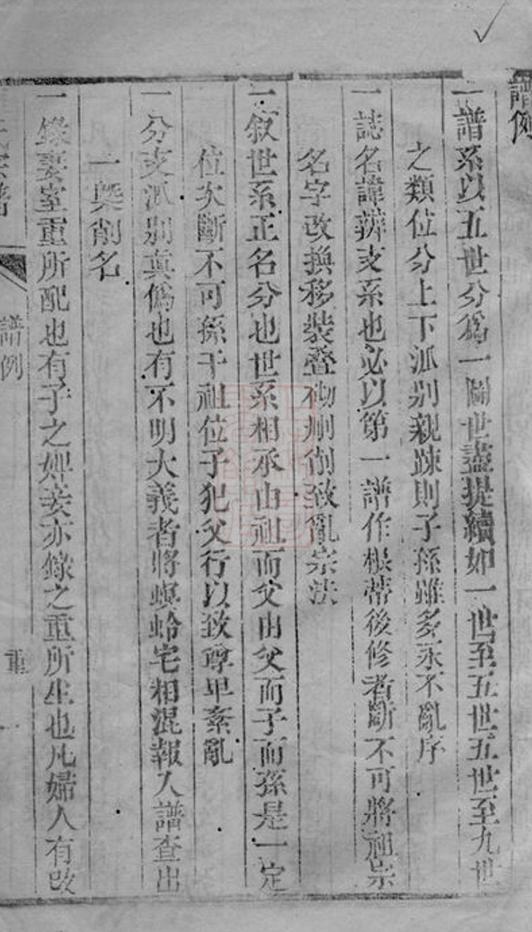 譜例
一譜系以五世分爲一圖世盡提續如一世至五世五世至九世
之類位分上下派别親疎則子孫雖多永不亂序
一誌名諱辨支系也必以第一譜作根蒂後修者斷不可將祖宗
名字改換移裝叠砌刪削致亂宗法
一叙世系正名分也世系相承由祖而父由父而子而孫是一定
位次斷不可孫干祖位子犯父行以致尊卑紊亂
一分支派别真僞也有不明大義者將螟蛉宅相混報入譜查出
一槩削名
一錄妻室重所配也有子之婢妾亦錄之重所生也凡婦人有改
譜例
重
一